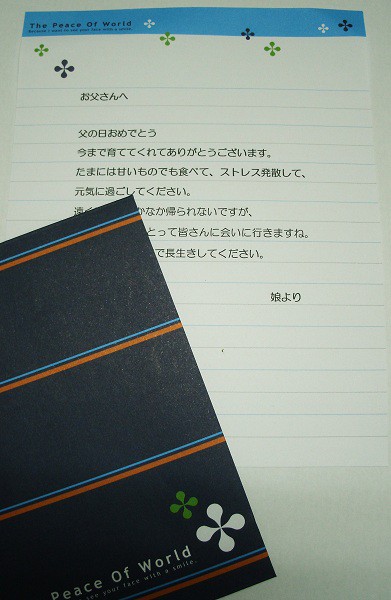 The Peace Of World
Because I want to see your face with a smile.
お父さんへ
父の日おめでとう
今まで育ててくれてありがとうございます。
たまには甘いものでも食べて、ストレス発散して、
元気に過ごしてください。
かなか帰られないですが、
とって皆さんに会いに行きますね。
で長生きしてください。
娘より
Peace Of World
see your face with a smile.